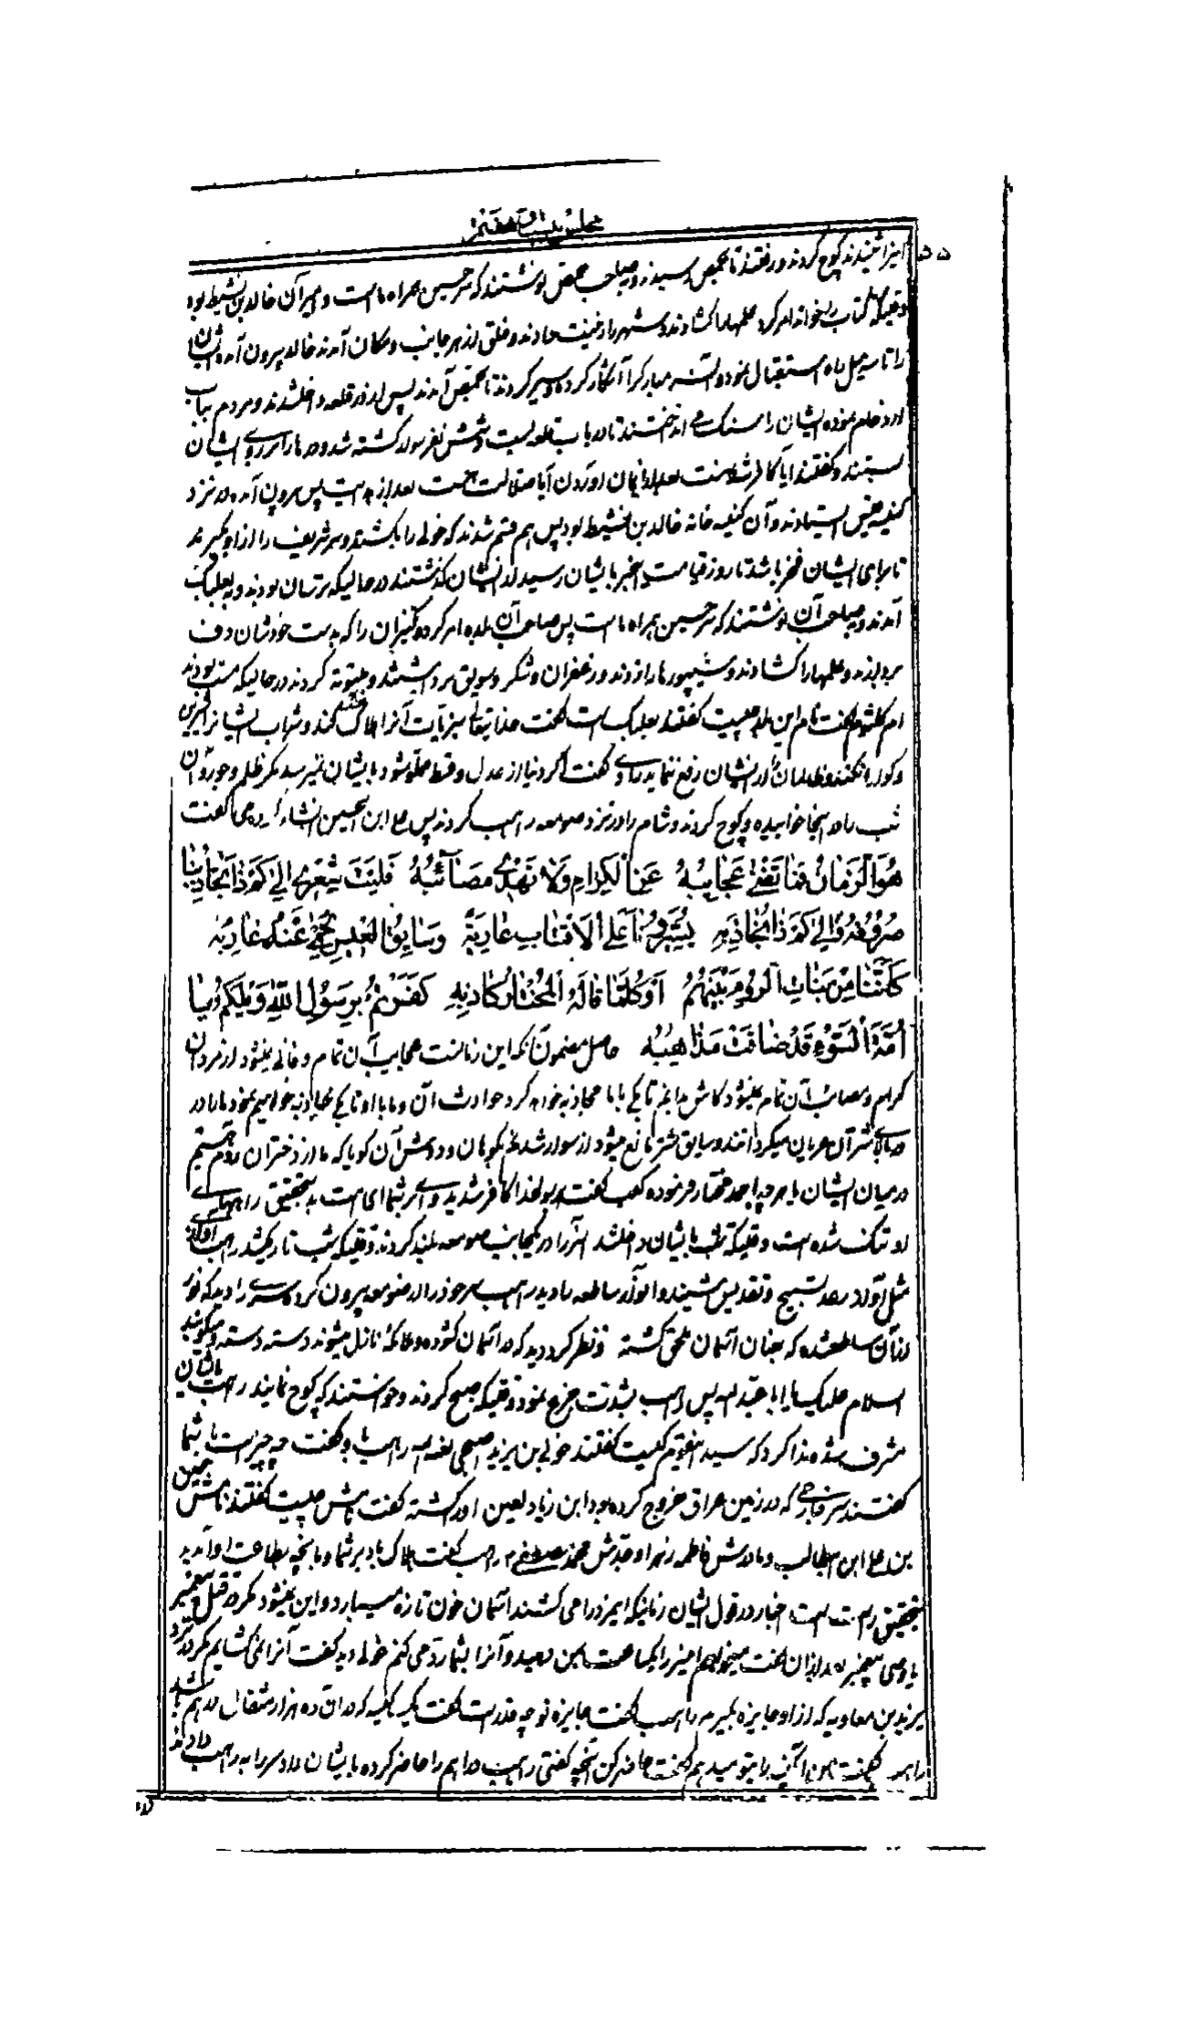 مجلس بیست و هفتم
۵۵
اینرا شنیدند کوچ کردند و رفتند تا بحمص رسیدند و بصاحب حمص نوشتند که سر حسین همراه ماست و امیر آن خالد بن نشیط بود
وقتیکه کتاب بخواند امر کرد علمها را کشادند و شهر را زینت دادند و خلق از هر جانب و مکان آمدند خالد بیرون آمد و ایشان
را تا سه میل راه استقبال نمود و سر مبارک را آشکار کرده و سیر کردند تا بحمص آمدند پس از در قلعه داخل شدند و مردم بباب
ازدحام نموده ایشان را سنگ می انداختند تا در باب قلعه بیست و شش نفر سوار کشته شد و در را بر روی ایشان
بستند و گفتند آیا کافر شدنست بعد از ایمان آوردن آیا ضلالت است بعد از هدایت پس بیرون آمده در نزد
کنیسه قسیس ایستادند و آن کنیسه خانه خالد بن نشیط بود پس هم قسم شدند که خولی را بکشند و سر شریف را از او بگیرند
تا برای ایشان فخر باشد تا روز قیامت این خبر بایشان رسید از ایشان گذشتند در حالیکه ترسان بودند و به بعلبک
آمدند و بصاحب آن نوشتند که سر حسین همراه ماست پس صاحب آن بلده امر کرد کنیزان را که بدست خودشان دف
بردارند و علمها را کشادند و شیپورها را زدند و زعفران و شکر و سویق برداشتند و بیتوته کردند در حالیکه مست بودند
ام کلثوم گفت نام این بلد چیست گفتند بعلبک است گفت خدایتعالی سبزیات آنرا هلاک کند و شراب ایشانرا شیرین
و گوارا نکند و ظالمان را از ایشان رفع ننماید راوی گفت اگر دنیا از عدل و قسط مملو شود بایشان نمیرسد مگر ظلم و جور و آن
شب را در اینجا خوابیده و کوچ کردند و شام را در نزد صومعه راهب کردند پس علی ابن الحسین انشاء کرده می گفت
هُوَ الزَّمَانُ فَمَا تَفْنَى عَجَائِبُهُ عَنِ الْکِرَامِ وَلَا تَهْدَی مَصَائِبُهُ فَلَیْتَ شِعْرِی إِلَی کَمْ ذَا تُجَاذِبُنَا
صُرُوفُهُ وَ إِلَی کَمْ ذَا نُجَاذِبُهُ یُسَیِّرُونَا عَلَی الْأَقْتَابِ عَارِیَةً وَسَایِقُ الْعِیسِ یَحْمِی عَنْهُ غَارِبُهُ
کَأَنَّنَا مِنْ بَنَاتِ الرُّومِ بَیْنَهُمُ أَوْ کُلَّمَا قَالَهُ الْمُخْتَارُ کَاذِبُهُ کَفَرْتُمُ بِرَسُولِ اللّهِ وَیْلَکُمُ یَا
أُمَّةَ السَّوْءِ قَدْ ضَاقَتْ مَذَاهِبُهُ حاصل مضمون آنکه این زمانست عجایب آن تمام و فانی نمیشود از مردان
کرام و مصائب آن تمام نمیشود کاش میدانم تا بکی با ما مجاذبه خواهد کرد حوادث آن و ما با او تا بکی مجاذبه خواهیم نمود ما را در
بالای شتران عریان میگردانند و سایق شتر مانع میشود از سوار شدن بکوهان و دوش آن گویا که ما از دختران روم هستیم
در میان ایشان یا هر چه احمد مختار فرموده کذب گفت برسولخدا کافر شدید وای بر شما ای امت بد بتحقیق راههای
او تنگ شده است وقتیکه شب بایشان داخل شد سر را در یکجانب صومعه بلند کردند وقتیکه شب تاریک شد راهب آوازی
مثل آواز رعد تسبیح و تقدیس شنید و انوار ساطعه را دید راهب سر خود را از صومعه بیرون کرده سری را دید که نور
از آن ساطع شده که بعنان آسمان ملحق گشته و نظر کرد دید که در آسمان گشوده و ملائکه نازل میشوند دسته دسته و میگویند
السلام علیک یا ابا عبد الله پس راهب بشدت جزع نمود وقتیکه صبح کردند و خواستند که کوچ نمایند راهب بایشان
مشرف شد و ندا کرد که سید این قوم کیست گفتند خولی بن یزید اصبحی لعنه الله راهب باو گفت چه چیز است با شما
گفتند سر خارجی که در زمین عراق خروج کرده بود ابن زیاد لعین او را کشته گفت نامش چیست گفتند نامش حسین
بن علی ابن ابیطالب و مادرش فاطمه زهرا و جدش محمد مصطفی راهب گفت هلاک باد بر شما و بآنچه بطاعت او آمدید
بتحقیق راست است اخبار در قول ایشان زمانیکه اینمرد را می کشند آسمان خون تازه میبارد و این نمیشود مگر در قتل پیغمبر
یا وصی پیغمبر بعد از آن گفت میخواهم این سر را یکساعت بمن بدهید و آنرا بشما رد می کنم خولی بد گفت آنرا نمی گشایم مگر در نزد
یزید بن معاویه که از او جایزه بگیرم راهب گفت جایزه تو چه قدر است گفت یک کیسه که در آن ده هزار مثقال درهم باشد
راهب گفت من این را بتو میدهم گفت حاضر کن آنچه گفتی راهب دراهم را حاضر کرده بایشان داد سر را به راهب دادند